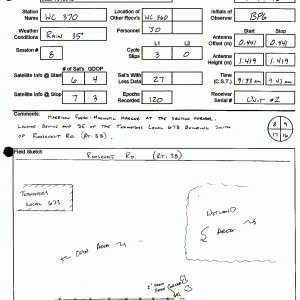 Station Name WC 370
Location of Other Recvr's WC 360
Initials of Observer BPG
Weather Conditions RAIN 35°
Personnel JO
Start Stop
Antenna Offset (m) 0.441 0.441
Session # 8
L1 L2
Cycle Slips 3 0
Antenna Height (m) 1.419 1.419
# of Sat's GDOP
Satellite Info @ Start 6 4
Sat's With Less Data 27
Time (C.S.T.) 9:33 AM 9:43 AM
Satellite Info @ Stop 7 3
Epochs Recorded 120
Receiver Serial # UNIT #2
Comments: HARRISON MAGNETIC MARKER AT THE SECOND
LOCATED BEHIND AND SE OF THE TEAMSTERS LOCAL 673 BUILDING SOUTH
OF ROOSEVELT RD. (RT. 38).
8 9
17 16
Field Sketch
ROOSEVELT RD. (RT. 38)
TEAMSTERS
LOCAL 673
WETLAND
AREA
OPEN AREA